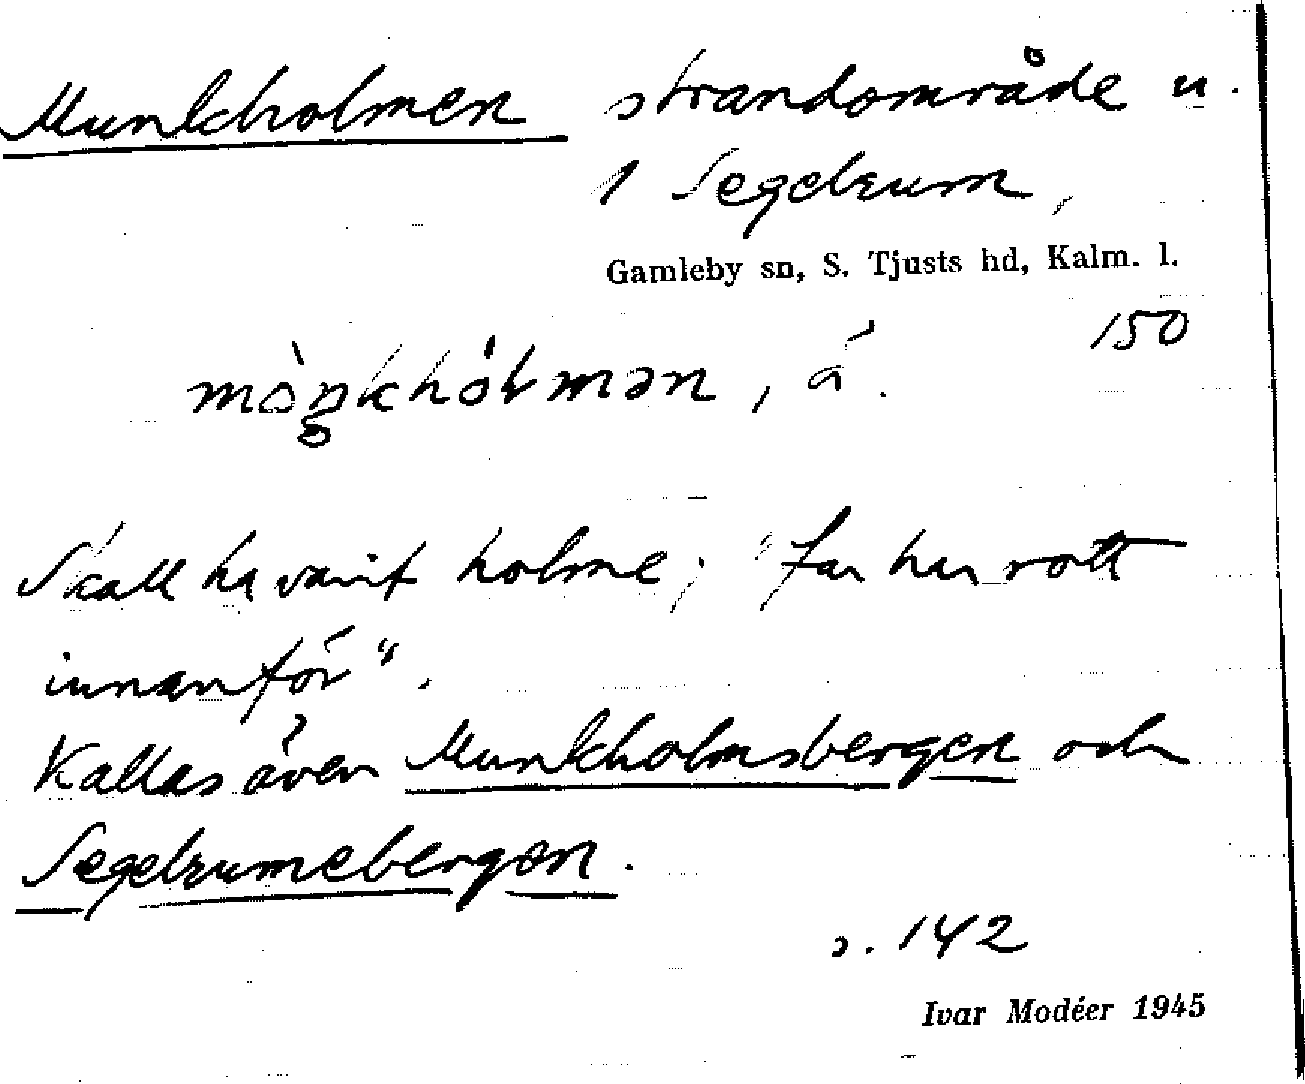 Munkholmen strandområde u.
1 Segelrum,
Gamleby sn, S. Tjusts hd, Kalm. l.
150
möŋkhólmən, á.
Skall ha varit holme; "far har rott
innanför".
Kallas även Munkholmsbergen och
Segelrumebergen.
s. 142
Ivar Modéer 1945